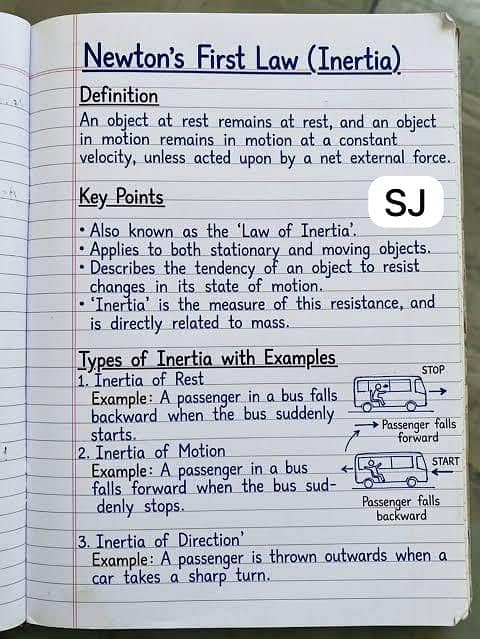 Newton's First Law (Inertia)
Definition
An object at rest remains at rest, and an object
in motion remains in motion at a constant
velocity, unless acted upon by a net external force.
Key Points
SJ
• Also known as the 'Law of Inertia'.
• Applies to both stationary and moving objects.
• Describes the tendency of an object to resist
changes in its state of motion.
• 'Inertia' is the measure of this resistance, and
is directly related to mass.
Types of Inertia with Examples
1. Inertia of Rest
Example: A passenger in a bus falls
backward when the bus suddenly
starts.
2. Inertia of Motion
Example: A passenger in a bus
falls forward when the bus sud-
denly stops.
STOP
Passenger falls
forward
START
Passenger falls
backward
3. Inertia of Direction'
Example: A passenger is thrown outwards when a
car takes a sharp turn.